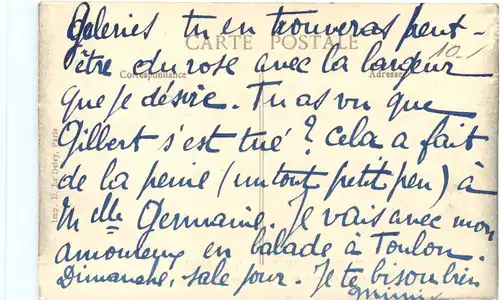 Galeries tu en trouveras peut-
CARTE POSTALE
être du rose avec la largeur
10-1
Correspondance
Adresse
que je désire. Tu as vu que
Gilbert s'est tué ? cela a fait
de la peine (un tout petit peu) à
Melle Germaine. Je vais avec mon
amoureux en balade à Toulon.
Dimanche, sale jour. Je te bisou bien
Mimi
Imp. E. Le Deley, Paris